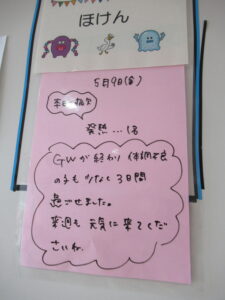 ほけん
5月9日(金)
本日の病欠
発熱…1名
GWが終わり体調不良
の子も少なく3日間
過ごせました。
来週も元気に来てくだ
さいね